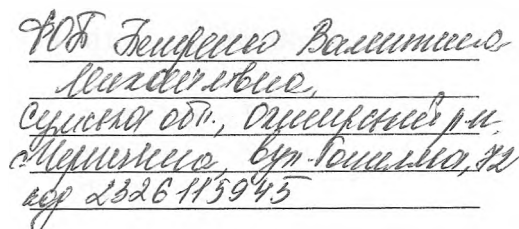 ФОП Бондаренко Валентина
Михайлівна,
Сумська обл., Охтирський р-н,
с. Чернеччина, вул. Гоголя, 72
код 2326115945